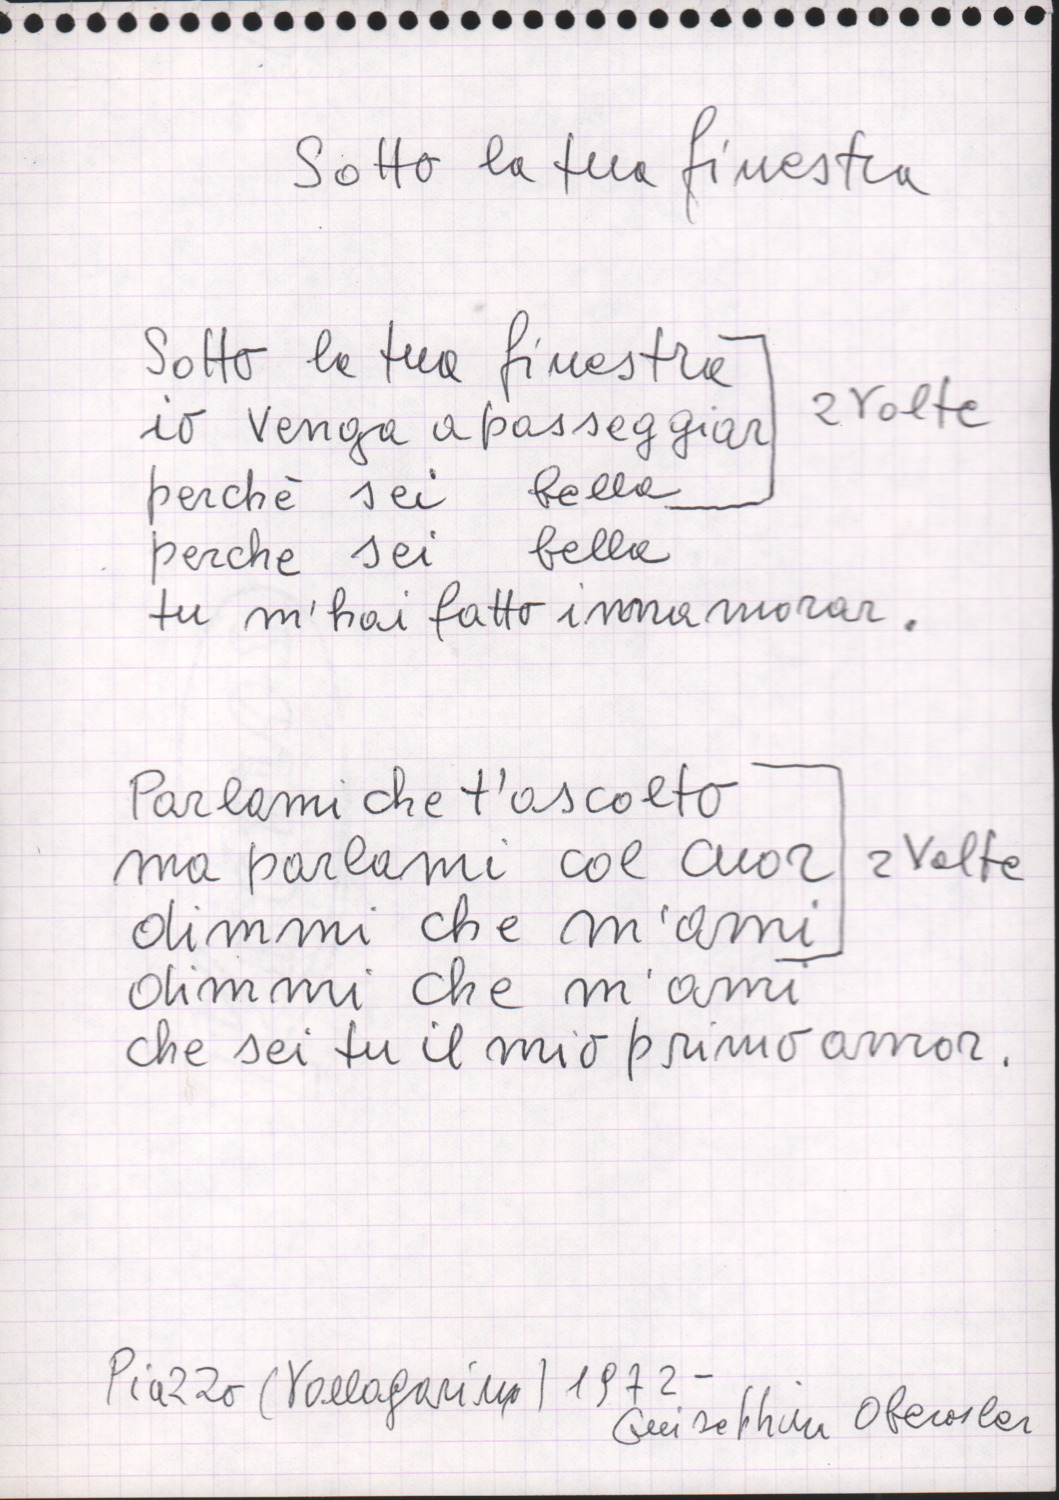 Sotto la tua finestra
Sotto la tua finestra
io venga a passeggiar
2 volte
perchè sei bella
perche sei bella
tu m'hai fatto innamorar.
Parlami che t'ascolto
ma parlami col cuor
2 Volte
dimmi che m'ami
dimmi che m'ami
che sei tu il mio primo amor.
Piazzo (Vallagarina) 1972-
Oberosler